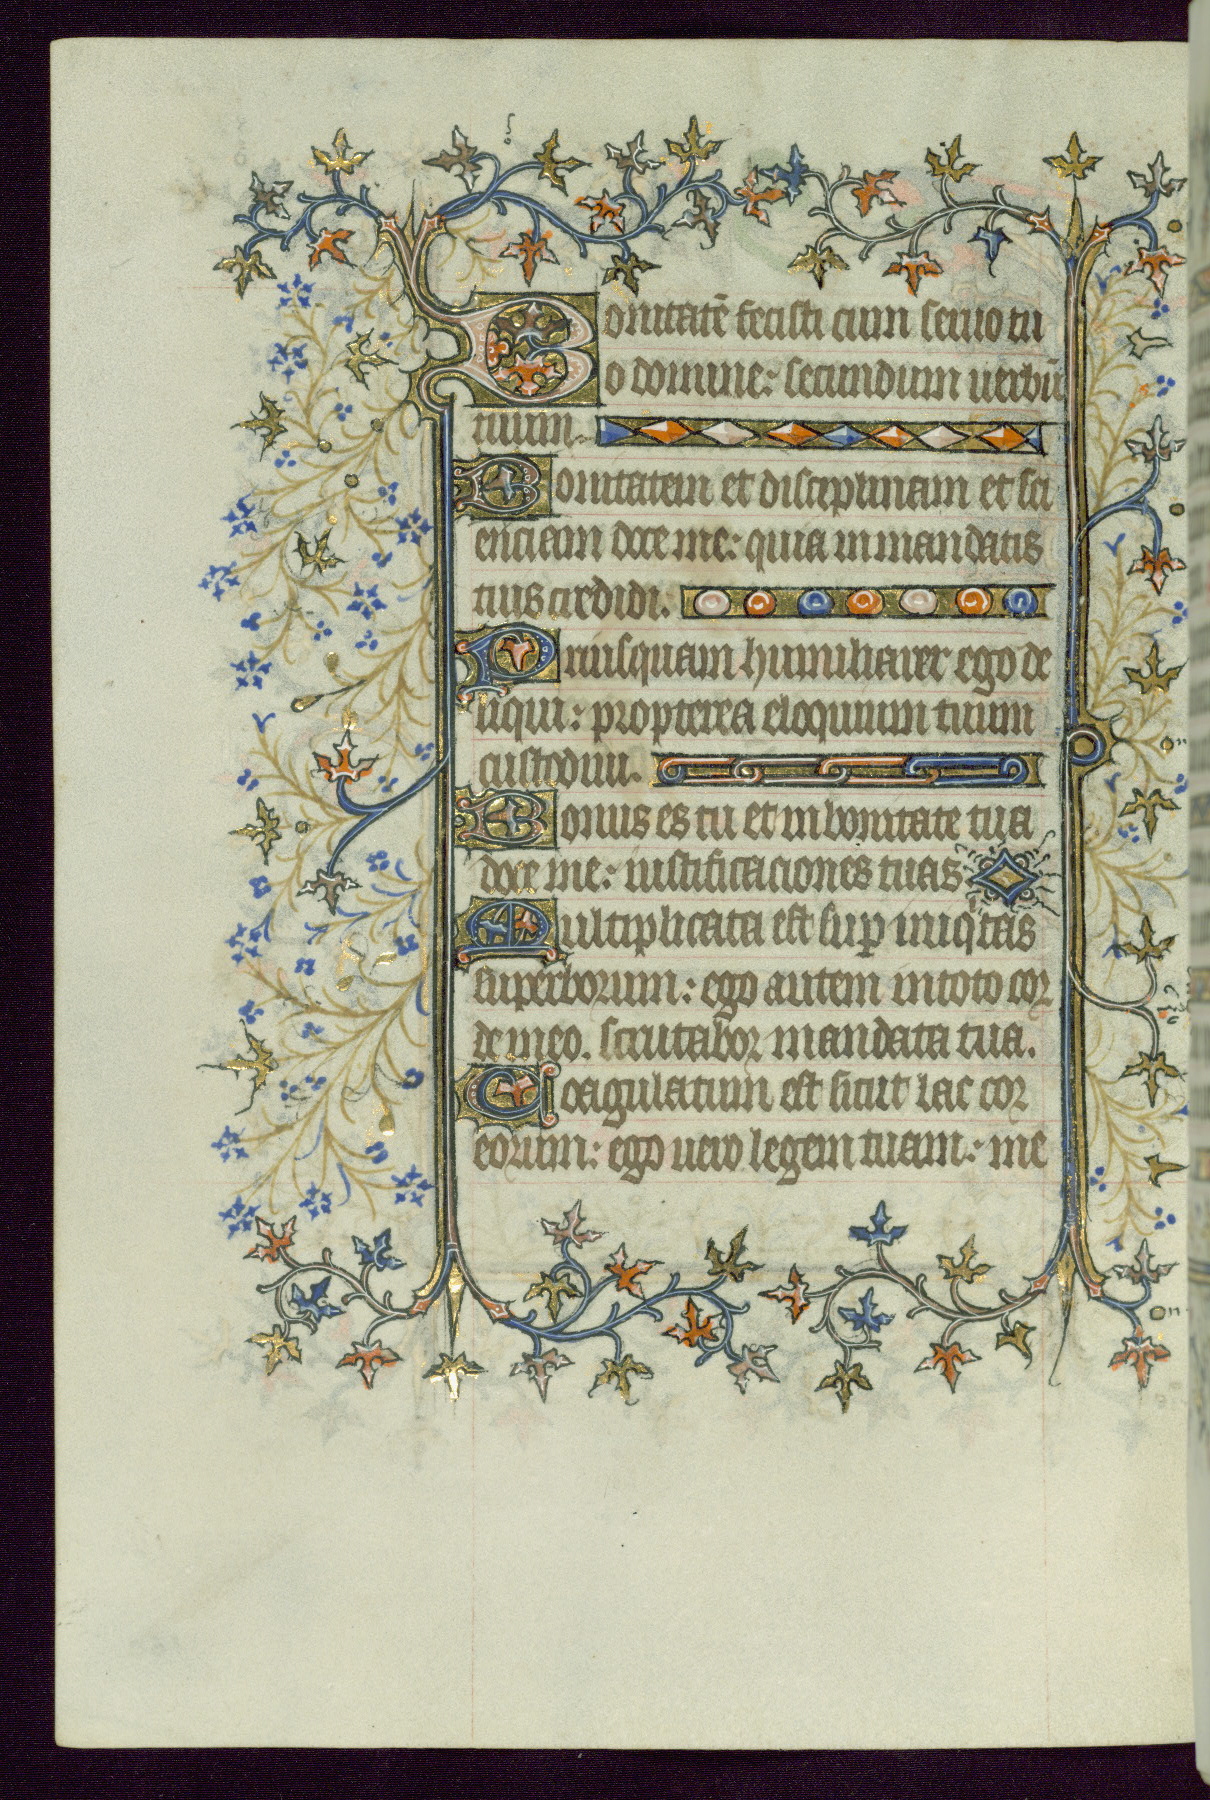 Bonitatē fecisti cum seruo tu
o domine: secundum uerbū
tuum.
Bonitatem et disciplinam et sci
enciam doce me: quia in mandatis
tuis credidi.
Priusquam humiliarer ego de
liqui: propterea eloquium tuum
custodiui.
Bonus es tu et in bonitate tua
doce me: iustificaciones tuas
Multiplicata est sup iniq'tas
superborum: ego autem in toto cor
de meo. scrutabor mandata tua.
Coagulatum est sicut lac cor
eorum: ego uero legem tuam: me